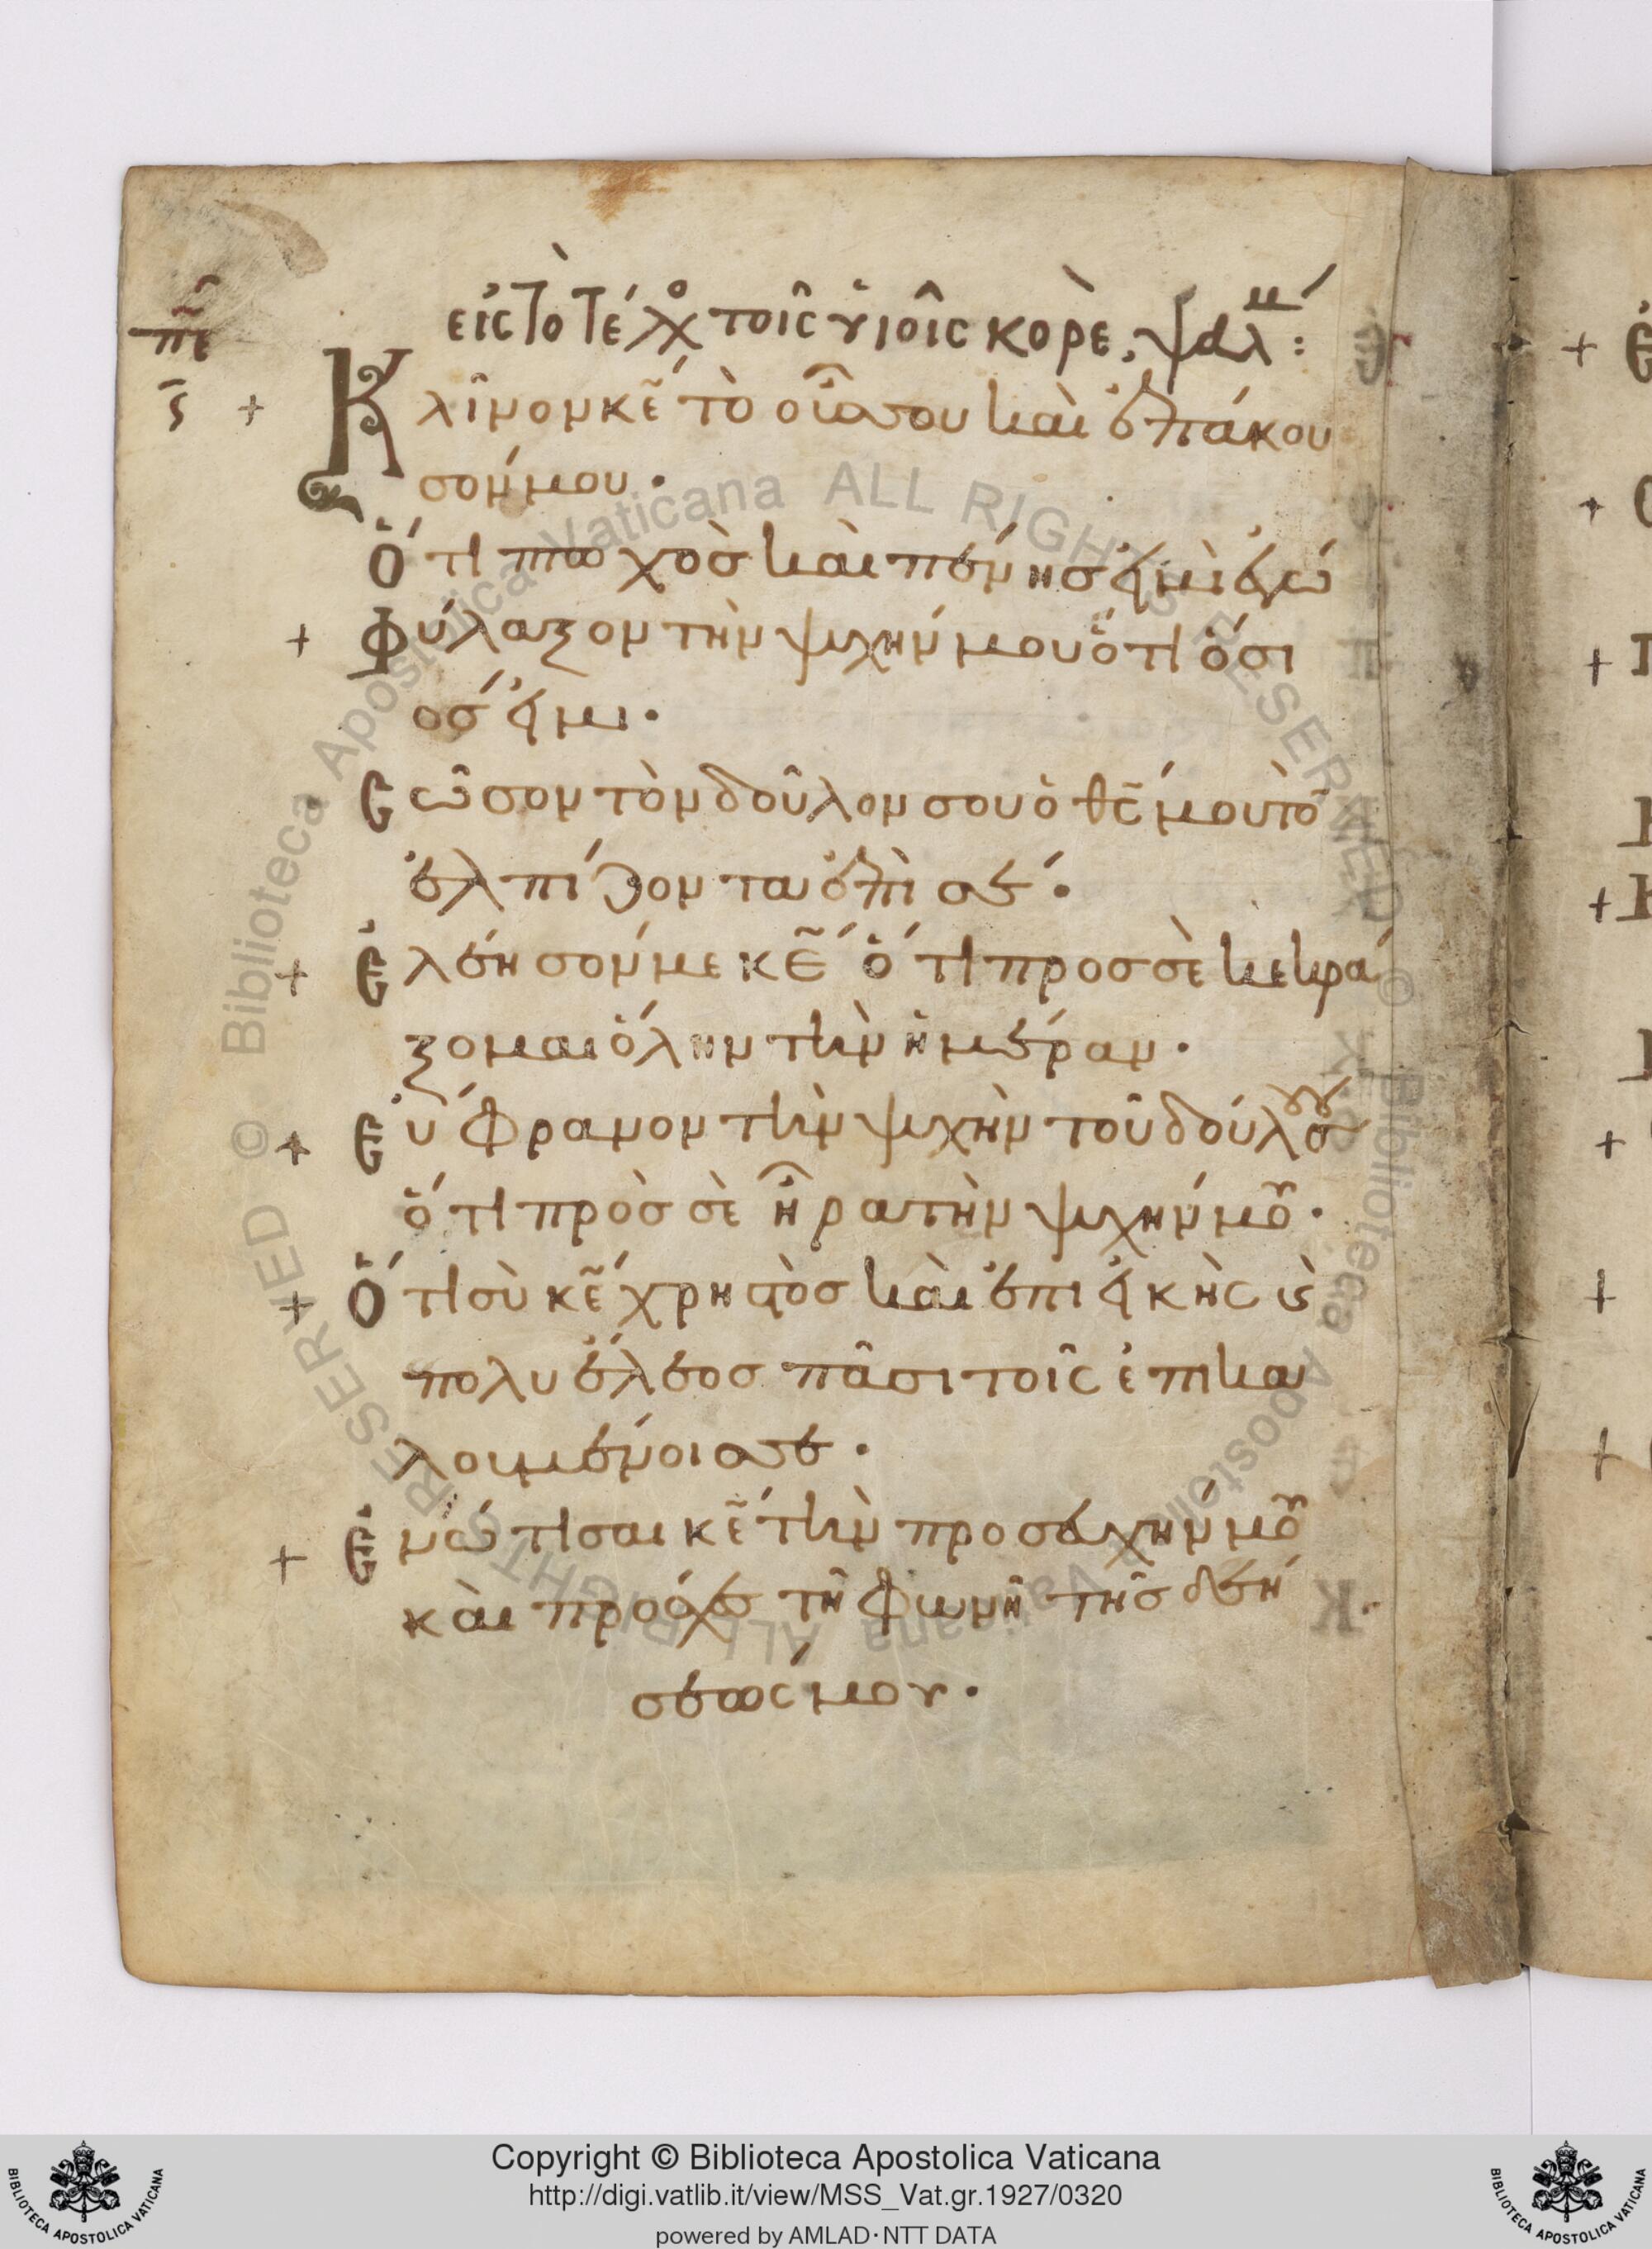 πε εἰς τὸ τέλος τοῖς υἱοῖς κορὲ, ψαλμ :
ϛ + Κλῖνον κε τὸ οὖς σου καὶ ἐπάκου
σόν μου ·
Ὅτι πτωχὸς καὶ πένης εἰμὶ ἐγώ
+ Φύλαξον τὴν ψυχήν μου ὅτι ὅσι
ος εἰμι ·
Σῶσον τὸν δοῦλον σου ὁ θς μου τὸ
ἐλπίζοντα ἐπὶ σέ ·
+ Ἐλέησόν με κε ὅτι προς σὲ κεκρά
ξομαι ὅλην τὴν ἡμέραν ·
+ Εὔφρανον τὴν ψυχὴν τοῦ δούλου σου
ὅτι πρὸς σὲ ἦρα τὴν ψυχήν μου ·
+ Ὅτι σὺ κε χρηστὸς καὶ ἐπιεικὴς ϗ
πολυέλεος πᾶσι τοῖς ἐπικα
λουμένοις σε ·
+ Ἐνώτισαι κε τὴν προσευχήν μου
καὶ πρόσχες τῇ φωνῇ τῆς δεή
σεώς μου ·
Copyright © Biblioteca Apostolica Vaticana
http://digi.vatlib.it/view/MSS_Vat.gr.1927/0320
powered by AMLAD·NTT DATA
BIBLIOTECA APOSTOLICA VATICANA
BIBLIOTECA APOSTOLICA VATICANA